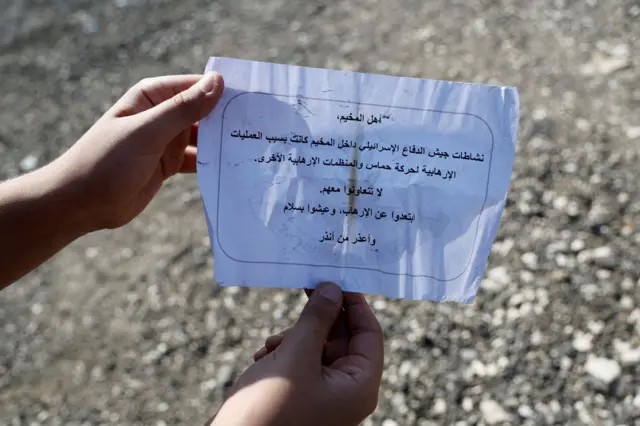 أهل المخيم،
نشاطات جيش الدفاع الإسرائيلي داخل المخيم كانت بسبب العمليات
الإرهابية لحركة حماس والمنظمات الإرهابية الأخرى.
لا تتعاونوا معهم.
ابتعدوا عن الإرهاب، وعيشوا بسلام
وأعذر من أنذر